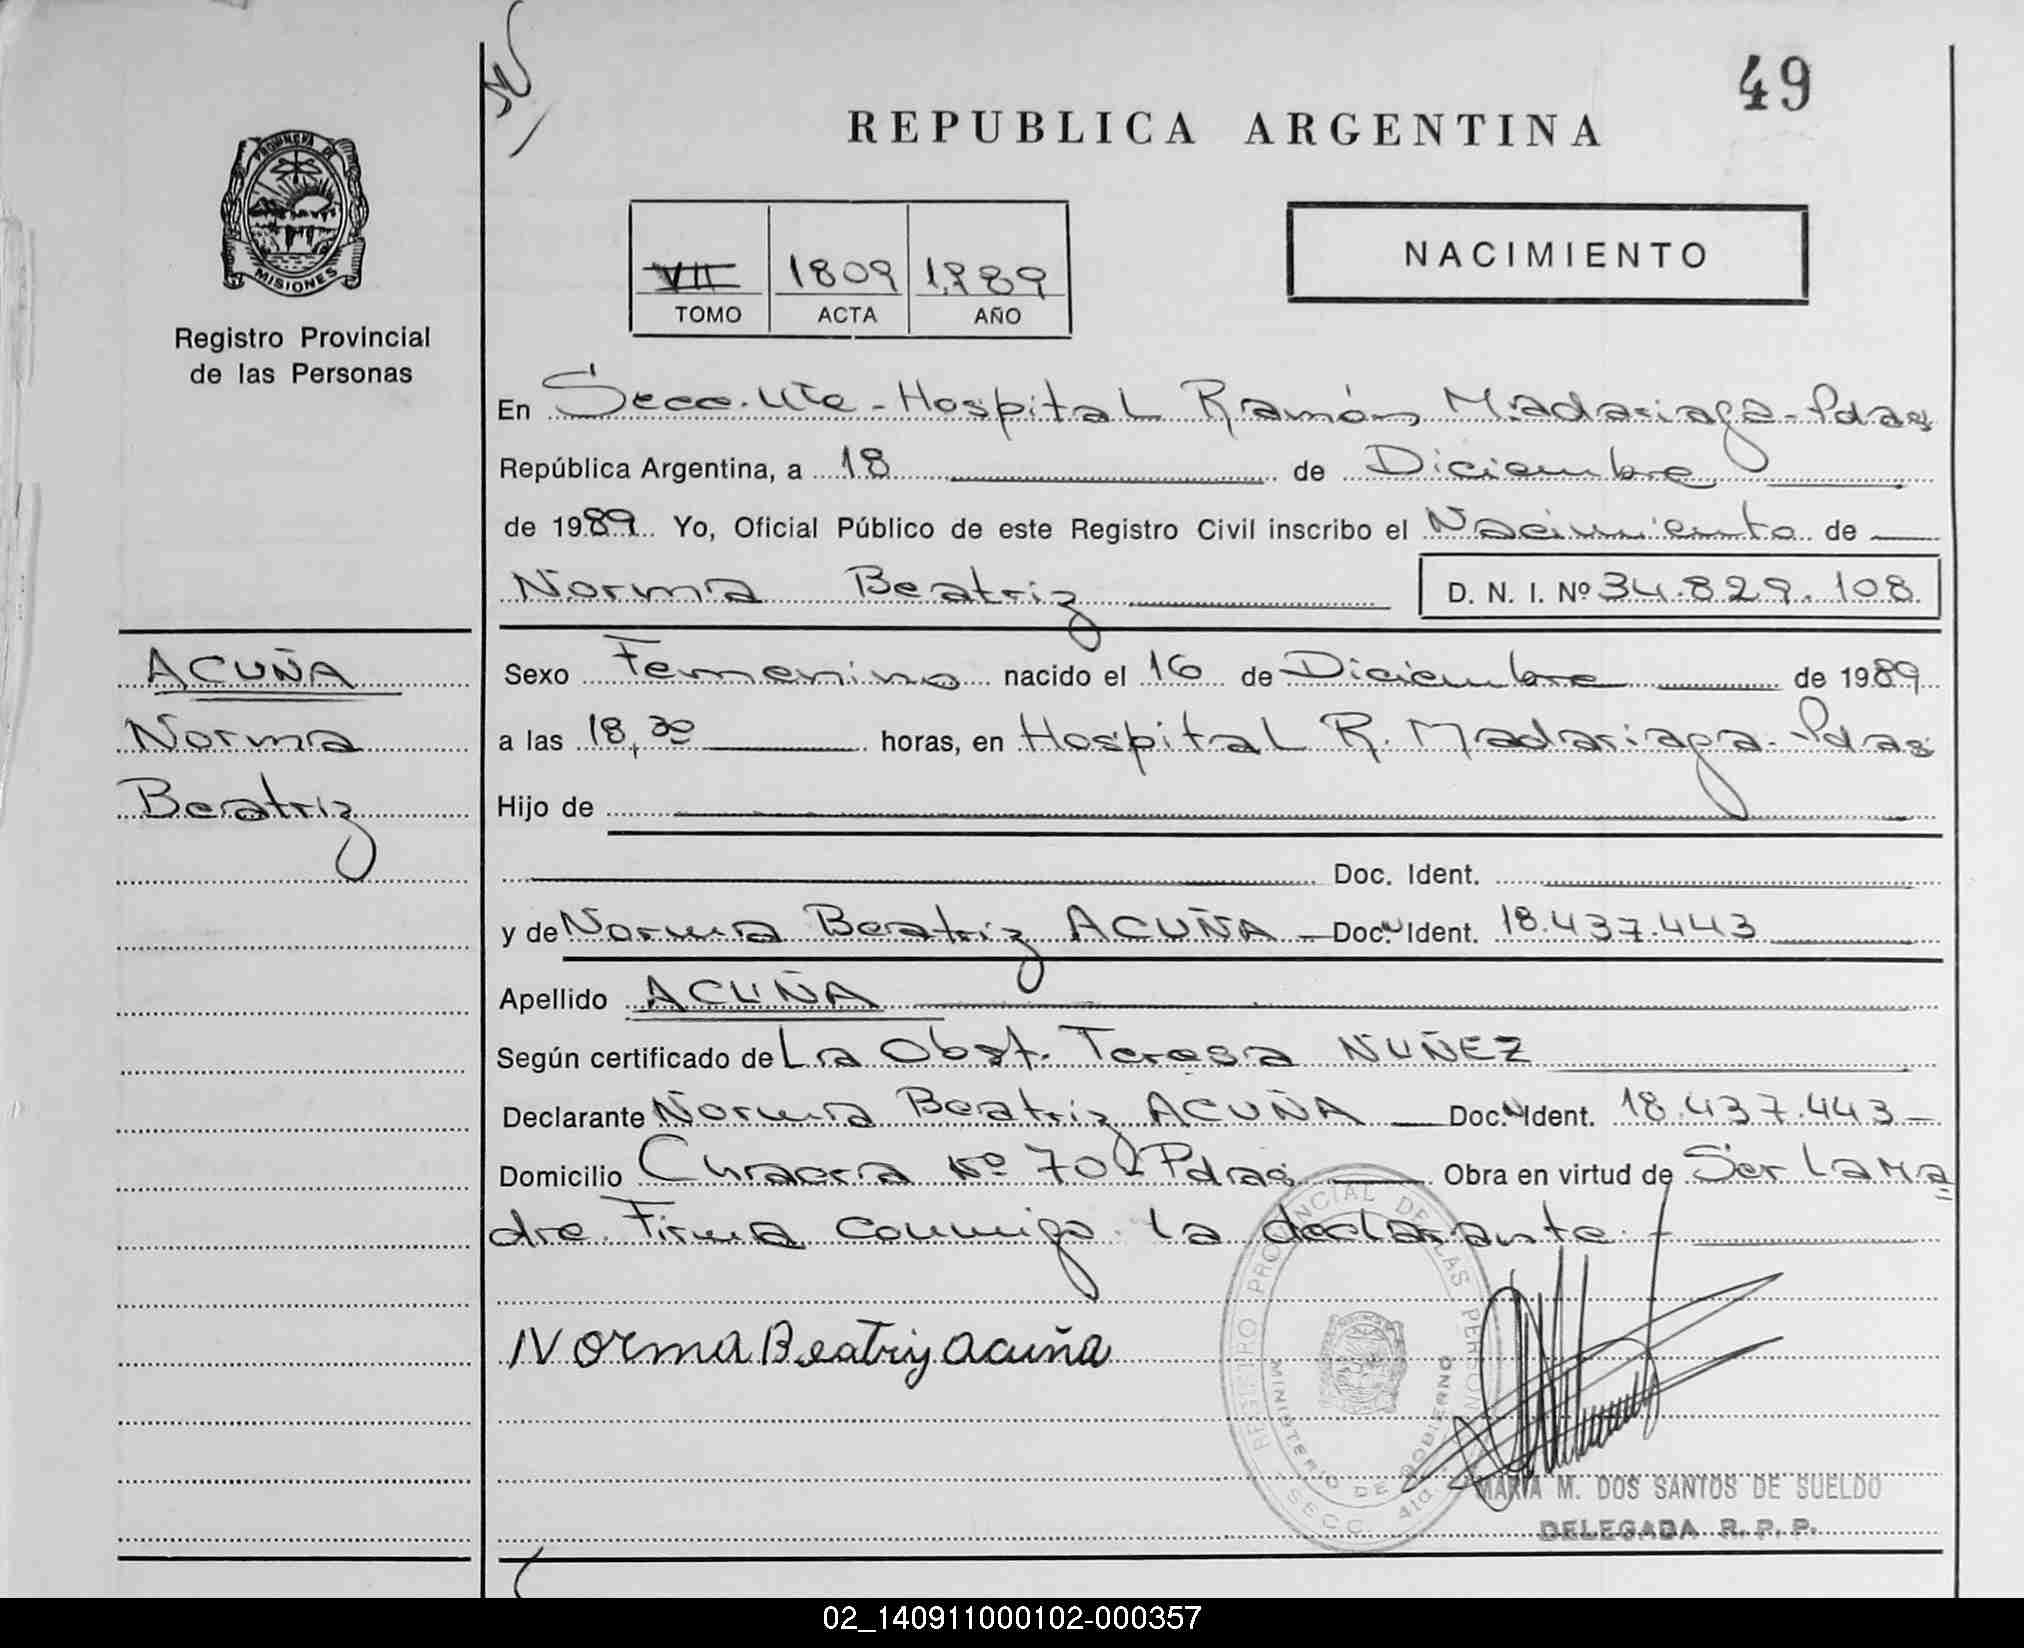 49
REPUBLICA ARGENTINA
PROVINCIA DE
MISIONES
Registro Provincial
de las Personas
VII 1809 1989
TOMO ACTA AÑO
NACIMIENTO
En Secc. 4ta - Hospital Ramón Madariaga - Pdas
República Argentina, a 18 de Diciembre
de 1989 Yo, Oficial Público de este Registro Civil inscribo el Nacimiento de
Norma Beatriz D. N. I. Nº 34.829.108
ACUÑA
Norma
Beatriz
Sexo Femenino nacido el 16 de Diciembre de 1989
a las 18,30 horas, en Hospital R. Madariaga - Pdas
Hijo de
Doc. Ident.
y de Norma Beatriz ACUÑA - Doc. Ident. 18.437.443
Apellido ACUÑA
Según certificado de La Obst. Teresa NUÑEZ
Declarante Norma Beatriz ACUÑA - Doc. Ident. 18.437.443 -
Domicilio Nº 70 - Pdas Obra en virtud de Ser La Ma
dre. Firma conmigo la declarante. -
Norma Beatriz Acuña
REGISTRO PROVINCIAL DE LAS PERSONAS
MINISTERIO DE GOBIERNO
SECC. 4ta.
MARIA M. DOS SANTOS DE SUELDO
DELEGADA R. P. P.
02_140911000102-000357